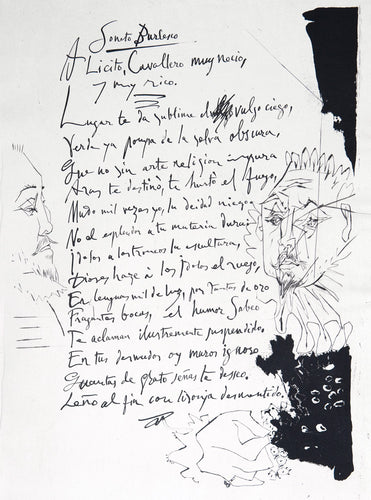 Soneto Burlesco
A Licito, Cavallero muy necio,
y muy rico.
Lugar te da sublime el vulgo ciego,
Verde ya pompa de la selva obscura,
Que no sin arte religion impura
Aras te destinó, te hurtó el fuego,
Mudo mil vezes yo, la deidad niego,
No el esplendor a tu materia dura:
Idolos a los troncos la escultura,
Dioses haze à los Idolos el ruego,
En lenguas mil de luz, por tantas de oro
Fragantes bocas, el humor Sabeo
Te aclaman ilustremente suspendido.
En tus desnudos oy muros ignoro
Quantas de grato señas te desseo.
Leño al fin con lisonja desmentido.